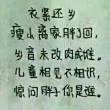 衣紧还乡
瘦小离家胖了回,
乡音未改肉成堆。
儿童相见不相识,
惊问胖子你是谁。